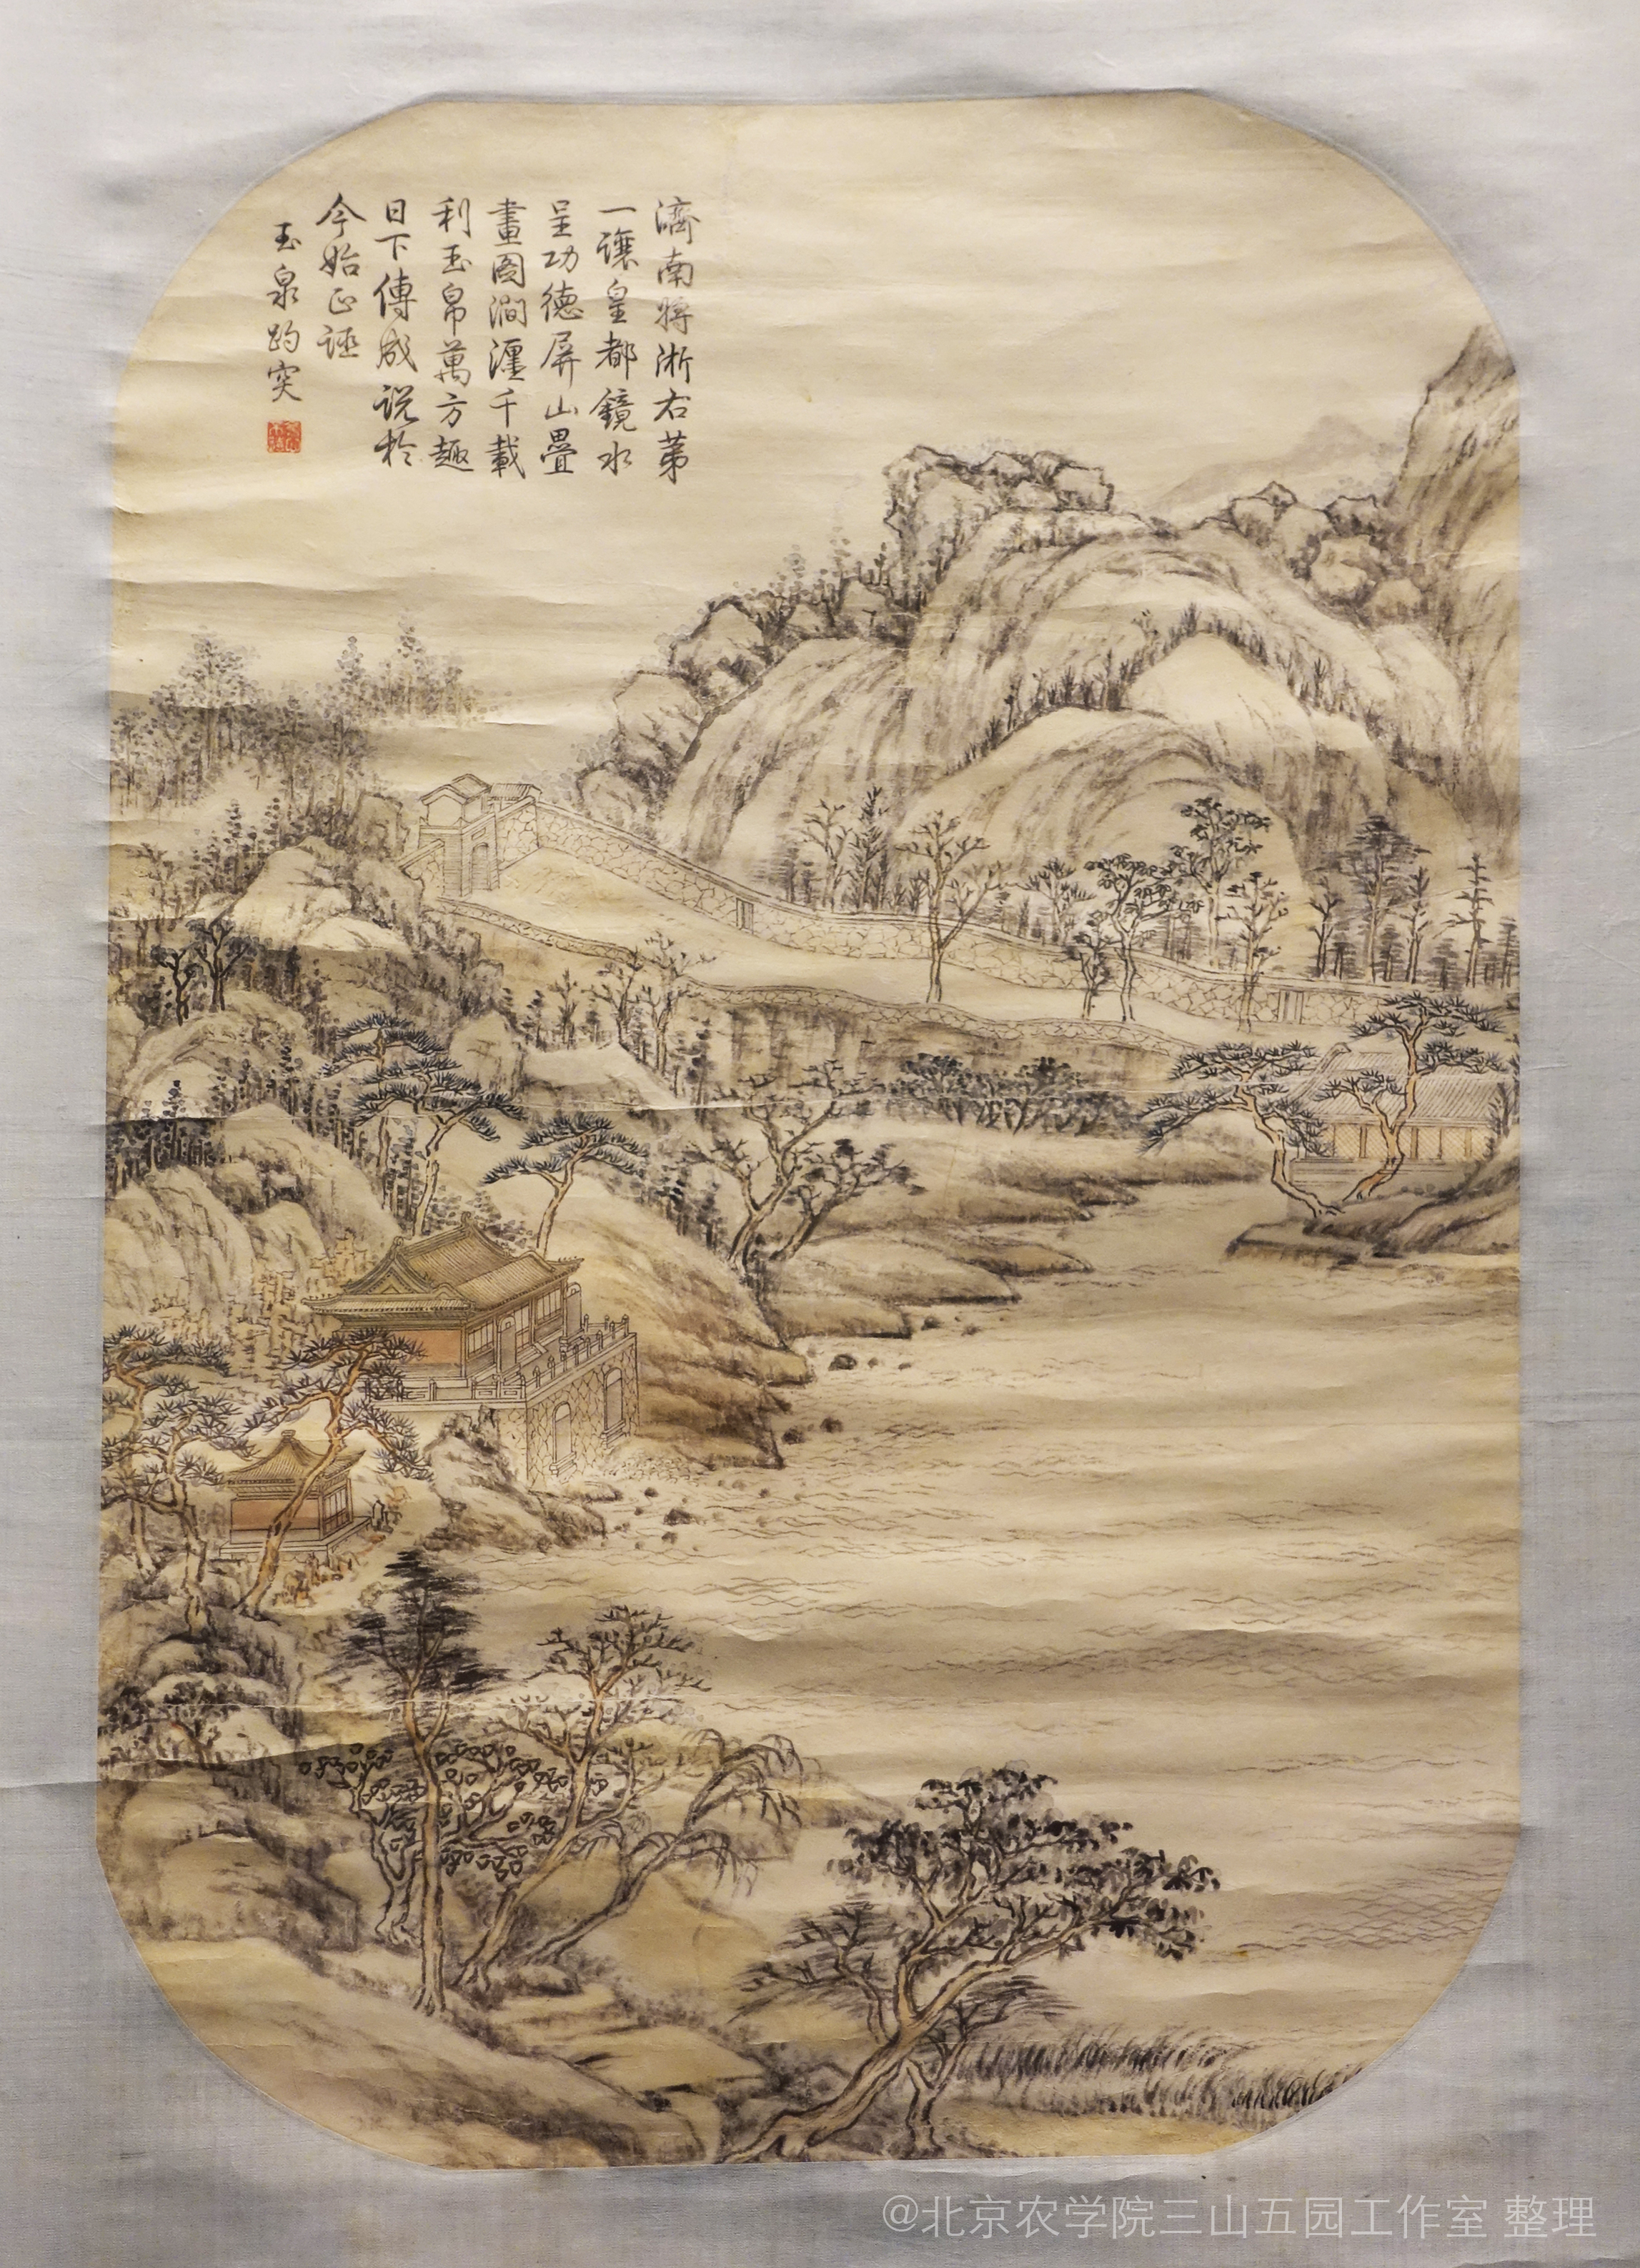 濟南將淅右苐
一讓皇都鏡水
呈功德屏山疊
畫圖澗瀍千載
利玉帛萬方趣
日下傳成説於
今始正誣
玉泉趵突
@北京农学院三山五园工作室 整理